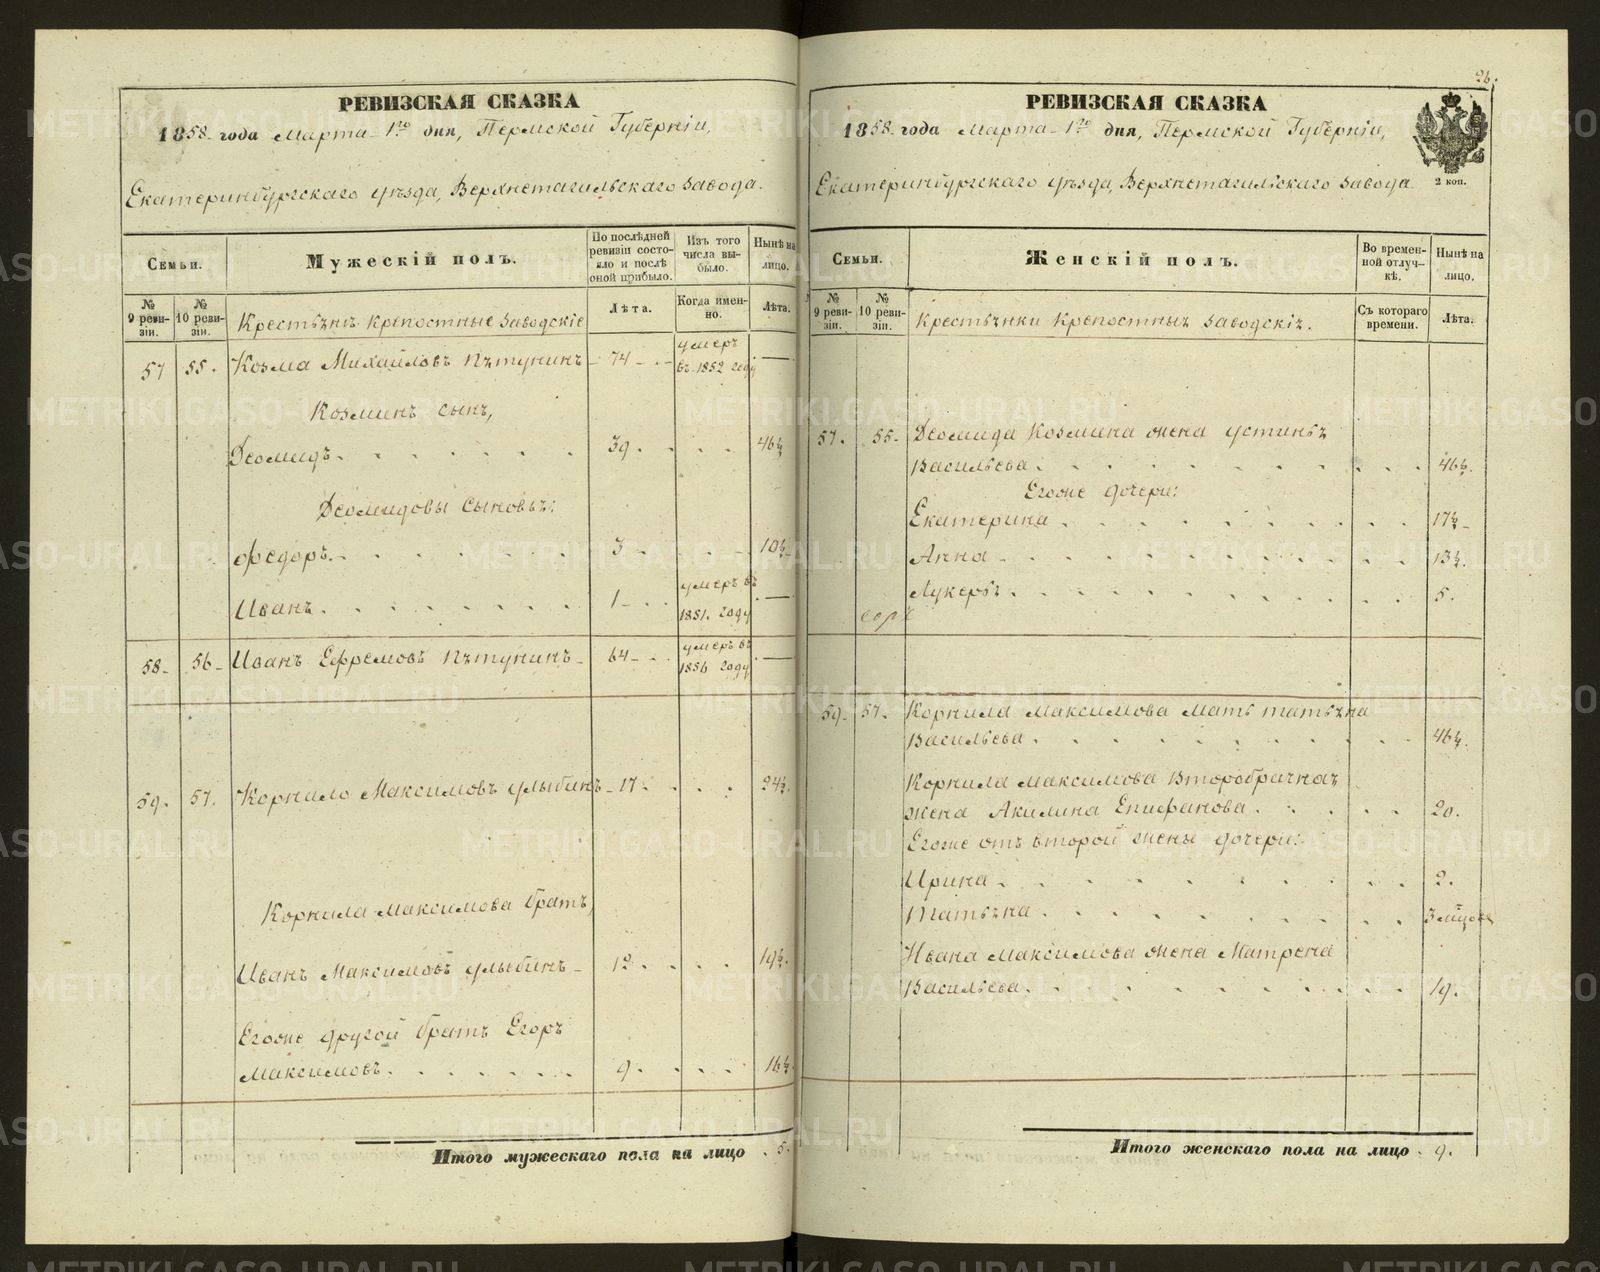 РЕВИЗСКАЯ СКАЗКА
1858 года Марта 1го дня, Пермской Губернiи,
Екатеринбургскаго уѣзда, Верхнетагильскаго завода.
Семьи.
Мужескiй полъ.
По послѣдней ревизiи состояло и послѣ оной прибыло.
Изъ того числа выбыло.
Нынѣ на лицо.
№ 9 ревизiи.
№ 10 ревизiи.
Крестьяне крепостные заводскiе
Лѣта.
Когда именно.
Лѣта.
57 55. Козма Михайловъ Пѣтунинъ 74 умеръ въ 1852 году —
Козминъ сынъ,
Деомидъ 39 46½
Деомидовы сыновья:
Федоръ 3 10½
Иванъ 1 умеръ въ 1851. году —
58 56 Иванъ Ефремовъ Пѣтунинъ 64 умеръ въ 1856 году —
59. 57. Корнило Максимовъ Улыбинъ 17. 24½.
Корнила Максимова братъ,
Иванъ Максимовъ Улыбинъ 12. 19½.
Егоже другой братъ Егоръ
Максимовъ 9. 16½
Итого мужескаго пола на лицо 5.
26.
РЕВИЗСКАЯ СКАЗКА
1858 года Марта 1го дня, Пермской Губернiи,
2 коп.
Екатеринбургскаго уѣзда, Верхнетагильскаго завода
Семьи.
Женскiй полъ.
Во временной отлучкѣ.
Нынѣ на лицо.
№ 9 ревизiи.
№ 10 ревизiи.
Крестьянки крепостныя заводскiя.
Съ котораго времени.
Лѣта.
57. 55. Деомида Козмина жена Устинья
Васильева 46½.
Егоже дочери:
Екатерина 17½
Анна 13½.
Лукерья 5.
59. 57. Корнила Максимова мать Татьяна
Васильева 46½.
Корнила Максимова второбрачная
жена Акилина Епифанова 20.
Егоже отъ второй жены дочери:
Ирина 2.
Татьяна 3 мѣсяца
Ивана Максимова жена Матрена
Васильева 19.
Итого женскаго пола на лицо 9.
METRIKI.GASO-URAL.RU